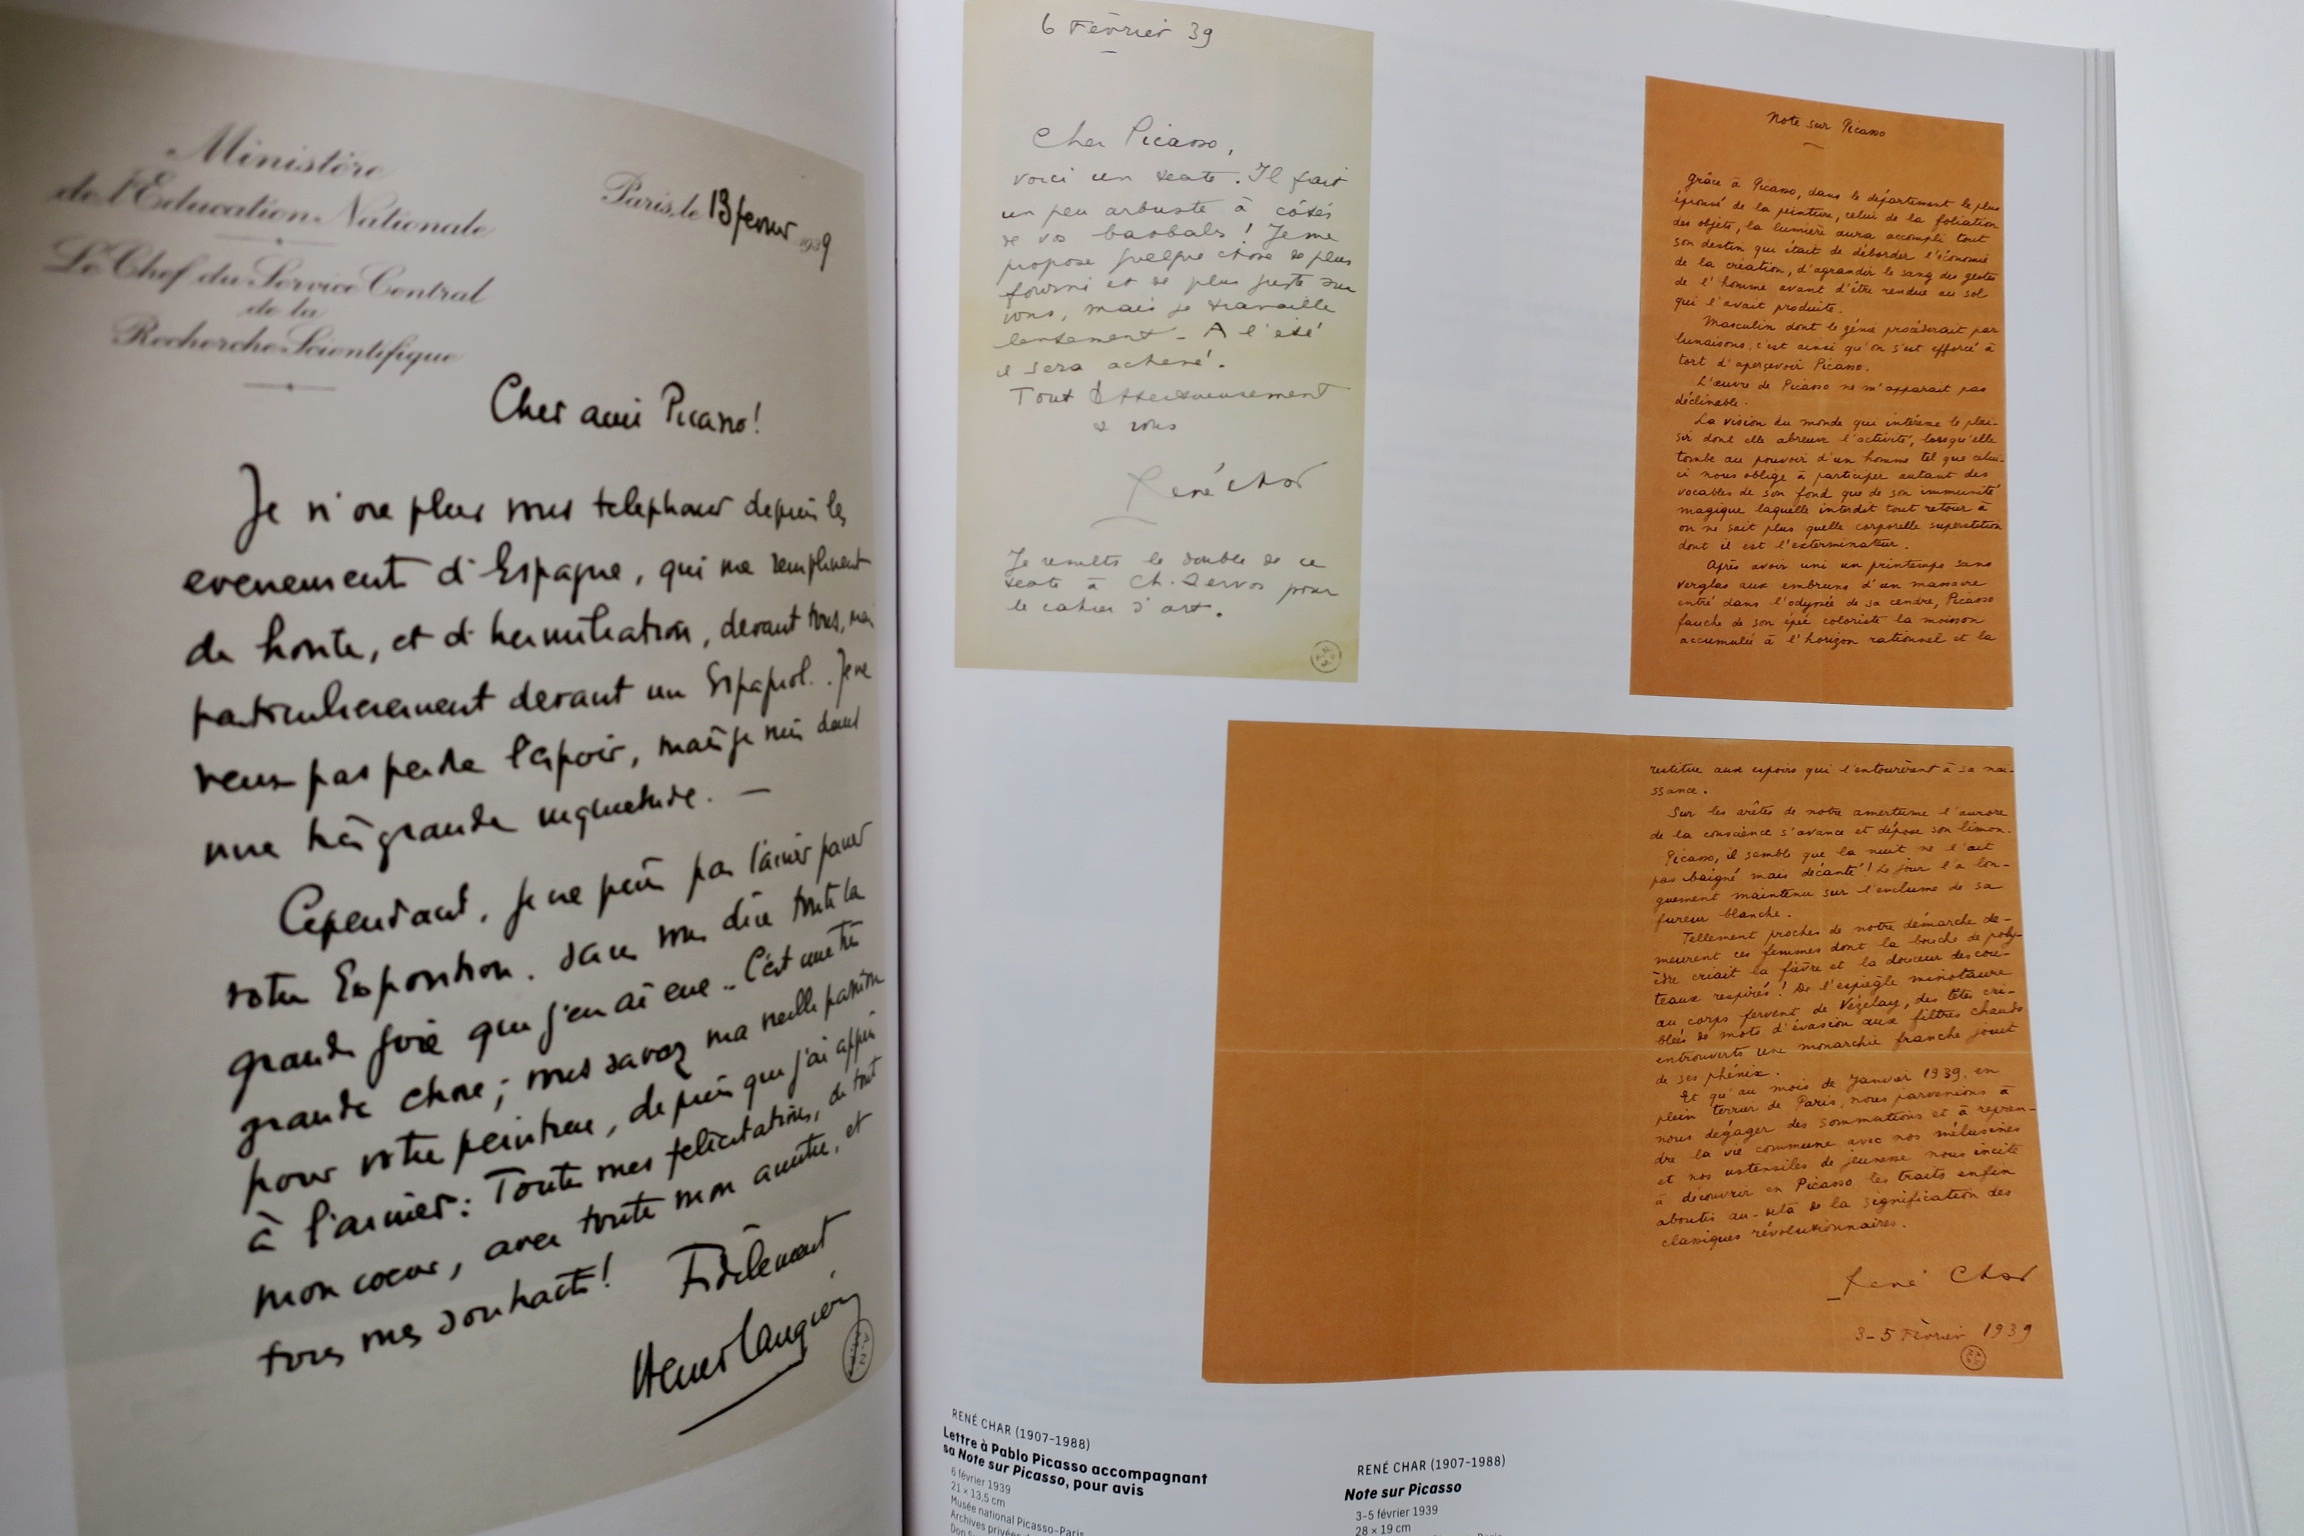 Ministère
de l'Education Nationale
Le Chef du Service Central
de la
Recherche Scientifique
Paris, le 13 fevrier 1939
Cher ami Picasso!
Je n'ose plus vous telephoner depuis les
evenements d'Espagne, qui me remplissent
de honte, et d'humiliation, devant tous, mais
particulierement devant un Espagnol.. Je ne
veux pas perdre l'espoir, mais je suis dans
une très grande inquietude. —
Cependant, je ne puis pas laisser passer
votre Exposition. sans vous dire toute la
grande joie que j'en ai eue.. C'est une très
grande chose; vous savez ma vieille passion
pour votre peinture, depuis que j'ai appris
à l'aimer: Toutes mes felicitations, de tout
mon coeur, avec toute mon amitie, et
tous mes souhaits! Fidèlement
Henri Laugier
6 Février 39
Cher Picasso,
voici un texte. Il fait
un peu arbuste à côtés
de vos baobabs! Je me
propose quelque chose de plus
fourni et de plus juste sur
vous, mais je travaille
lentement - A l'été
il sera achevé.
Tout affectueusement
à vous
René Char
Je remets le double de ce
texte à Ch. Zervos pour
le cahier d'art.
Note sur Picasso
grâce à Picasso, dans le département le plus
éprouvé de la peinture, celui de la foliation
des objets, la lumière aura accompli tout
son destin qui était de déborder l'économie
de la création, d'agrandir le sang des gestes
de l'homme avant d'être rendue au sol
qui l'avait produite.
Masculin dont le génie procéderait par
lunaisons, c'est ainsi qu'on s'est efforcé à
tort d'apercevoir Picasso.
L'œuvre de Picasso ne m'apparaît pas
déclinable.
La vision du monde qui intéresse le plai-
sir dont elle abreuve l'activité, lorsqu'elle
tombe au pouvoir d'un homme tel que celui-
ci nous oblige à participer autant des
vocables de son fond que de son immunité
magique laquelle interdit tout retour à
on ne sait plus quelle corporelle superstition
dont il est l'exterminateur.
Après avoir uni un printemps sans
verglas aux embruns d'un massacre
entré dans l'odyssée de sa cendre, Picasso
fauche de son épée coloriste la moisson
accumulée à l'horizon rationnel et la
restitue aux espoirs qui l'entourèrent à sa nai-
ssance.
Sur les arêtes de notre amertume l'aurore
de la conscience s'avance et dépose son limon.
Picasso, il semble que la nuit ne l'ait
pas baigné mais décanté! Le jour l'a lon-
guement maintenu sur l'enclume de sa
fureur blanche.
Tellement proches de notre démarche de-
meurent ces femmes dont la bouche de poly-
èdre criait la fièvre et la douceur des cou-
teaux respirés! De l'espiègle minotaure
au corps fervent de Vézelay, des têtes cri-
blées de mots d'évasion aux filtres chauds
entrouverts une monarchie franche jouit
de ses phénix.
Et qu'au mois de Janvier 1939, en
plein terrier de Paris, nous parvenions à
nous dégager des sommations et à repren-
dre la vie commune avec nos mélusines
et nos ustensiles de jeunesse nous incite
à découvrir en Picasso les traits enfin
aboutis au-delà de la signification des
classiques révolutionnaires.
René Char
3-5 Février 1939
RENÉ CHAR (1907-1988)
Lettre à Pablo Picasso accompagnant
sa Note sur Picasso, pour avis
6 février 1939
21 × 13,5 cm
Musée national Picasso-Paris
Archives privées
Don
RENÉ CHAR (1907-1988)
Note sur Picasso
3-5 février 1939
28 × 19 cm